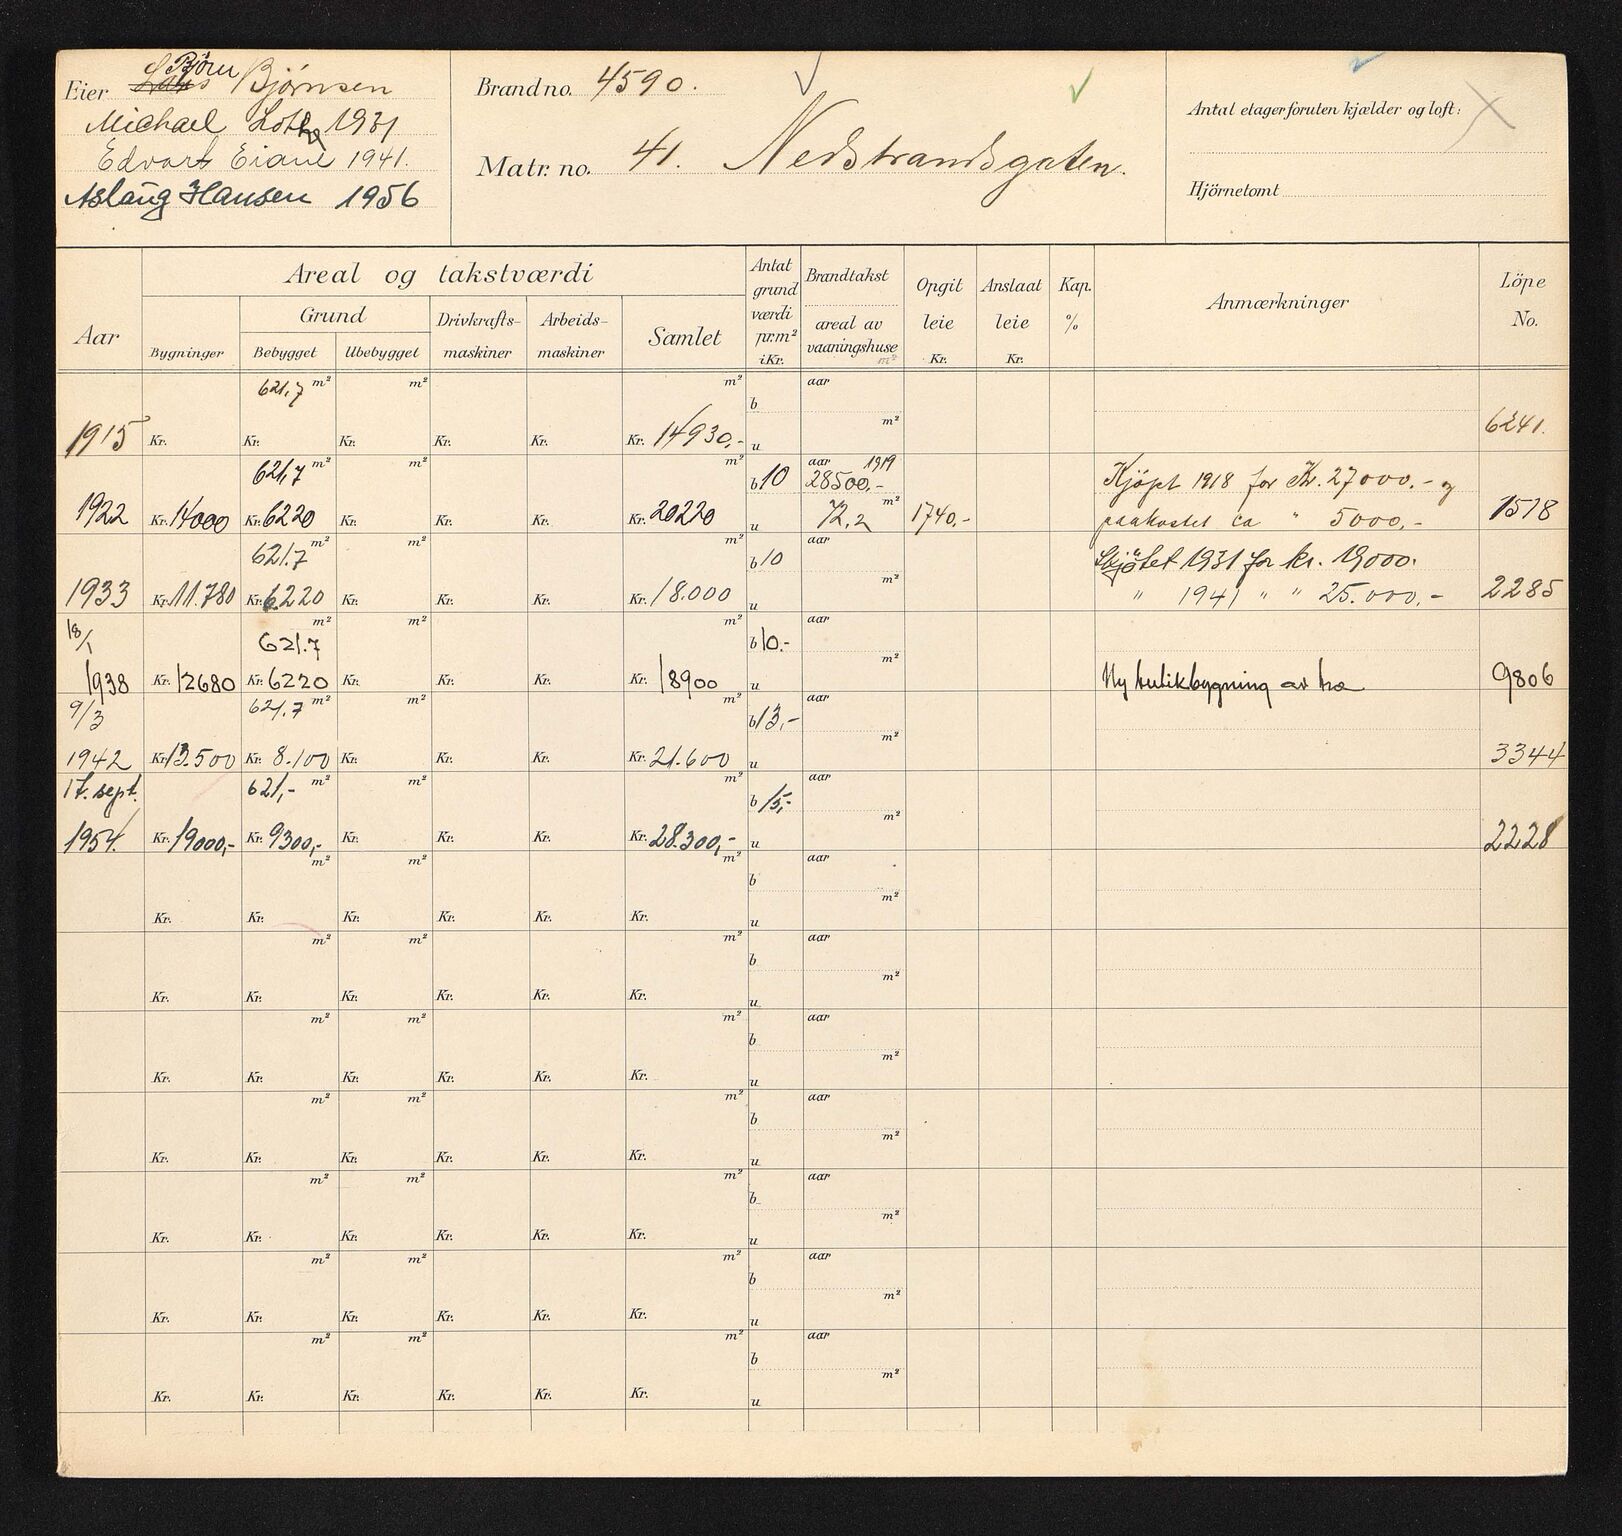 Eier Björn Bjørnsen
Michael Lothe 1931
Edvart Eiane 1941.
Aslaug Hansen 1956
Brand no. 4590.
Matr. no. 41. Nedstrandsgaten.
Antal etager foruten kjælder og loft:
Hjörnetomt
Aar
Areal og takstværdi
Bygninger
Grund
Bebygget Ubebygget
Drivkrafts-
maskiner
Arbeids-
maskiner
Samlet
Antat
grund
værdi
pr.m²
i Kr.
Brandtakst
areal av
vaaningshuse
m²
Opgit
leie
Kr.
Anslaat
leie
Kr.
Kap.
%
Anmærkninger
Löpe
No.
621,7 m² m² m² b aar
m²
1915 Kr. Kr. Kr. Kr. Kr. Kr. 14930,- u 6241.
621,7 m² m² m² b 10 aar 1919
28500,- Kjöpt 1918 for Kr. 27000.- og
1922 Kr. 14000 Kr. 6220 Kr. Kr. Kr. Kr. 20220 u 72,2 m² 1740,- paakostet ca " 5000,- 1578
621.7 m² m² m² b 10 aar Skjötet 1931 for kr. 19000.
m²
1933 Kr. 11.780 Kr. 6220 Kr. Kr. Kr. Kr. 18.000 u " 1941 " " 25.000,- 2285
18/1 621.7 m² m² m² b 10.- aar
m²
1938 Kr. 12680 Kr. 6220 Kr. Kr. Kr. Kr. 18900 u Ny butikbygning av tre 9806
9/3 621.7 m² m² m² b 13,- aar
m²
1942 Kr. 13.500 Kr. 8.100 Kr. Kr. Kr. Kr. 21.600 u 3344
17. sept. 621,- m² m² m² b 15,- aar
m²
1954. Kr. 19000,- Kr. 9300,- Kr. Kr. Kr. Kr. 28.300,- u 2228
m² m² m² b aar
m²
Kr. Kr. Kr. Kr. Kr. Kr. u
m² m² m² b aar
m²
Kr. Kr. Kr. Kr. Kr. Kr. u
m² m² m² b aar
m²
Kr. Kr. Kr. Kr. Kr. Kr. u
m² m² m² b aar
m²
Kr. Kr. Kr. Kr. Kr. Kr. u
m² m² m² b aar
m²
Kr. Kr. Kr. Kr. Kr. Kr. u
m² m² m² b aar
m²
Kr. Kr. Kr. Kr. Kr. Kr. u
m² m² m² b aar
m²
Kr. Kr. Kr. Kr. Kr. Kr. u